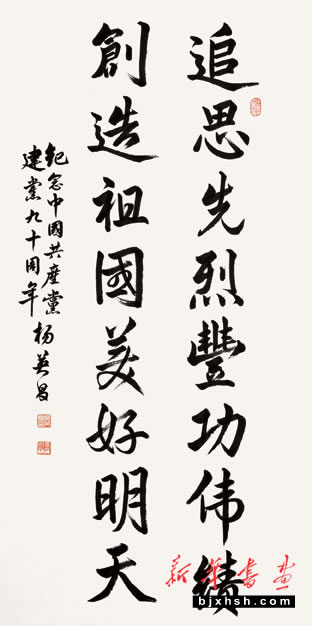 追思先烈豐功伟績
創造祖國美好明天
紀念中國共産黨
建黨九十周年 杨英昌
新華書画
bjxhsh.com